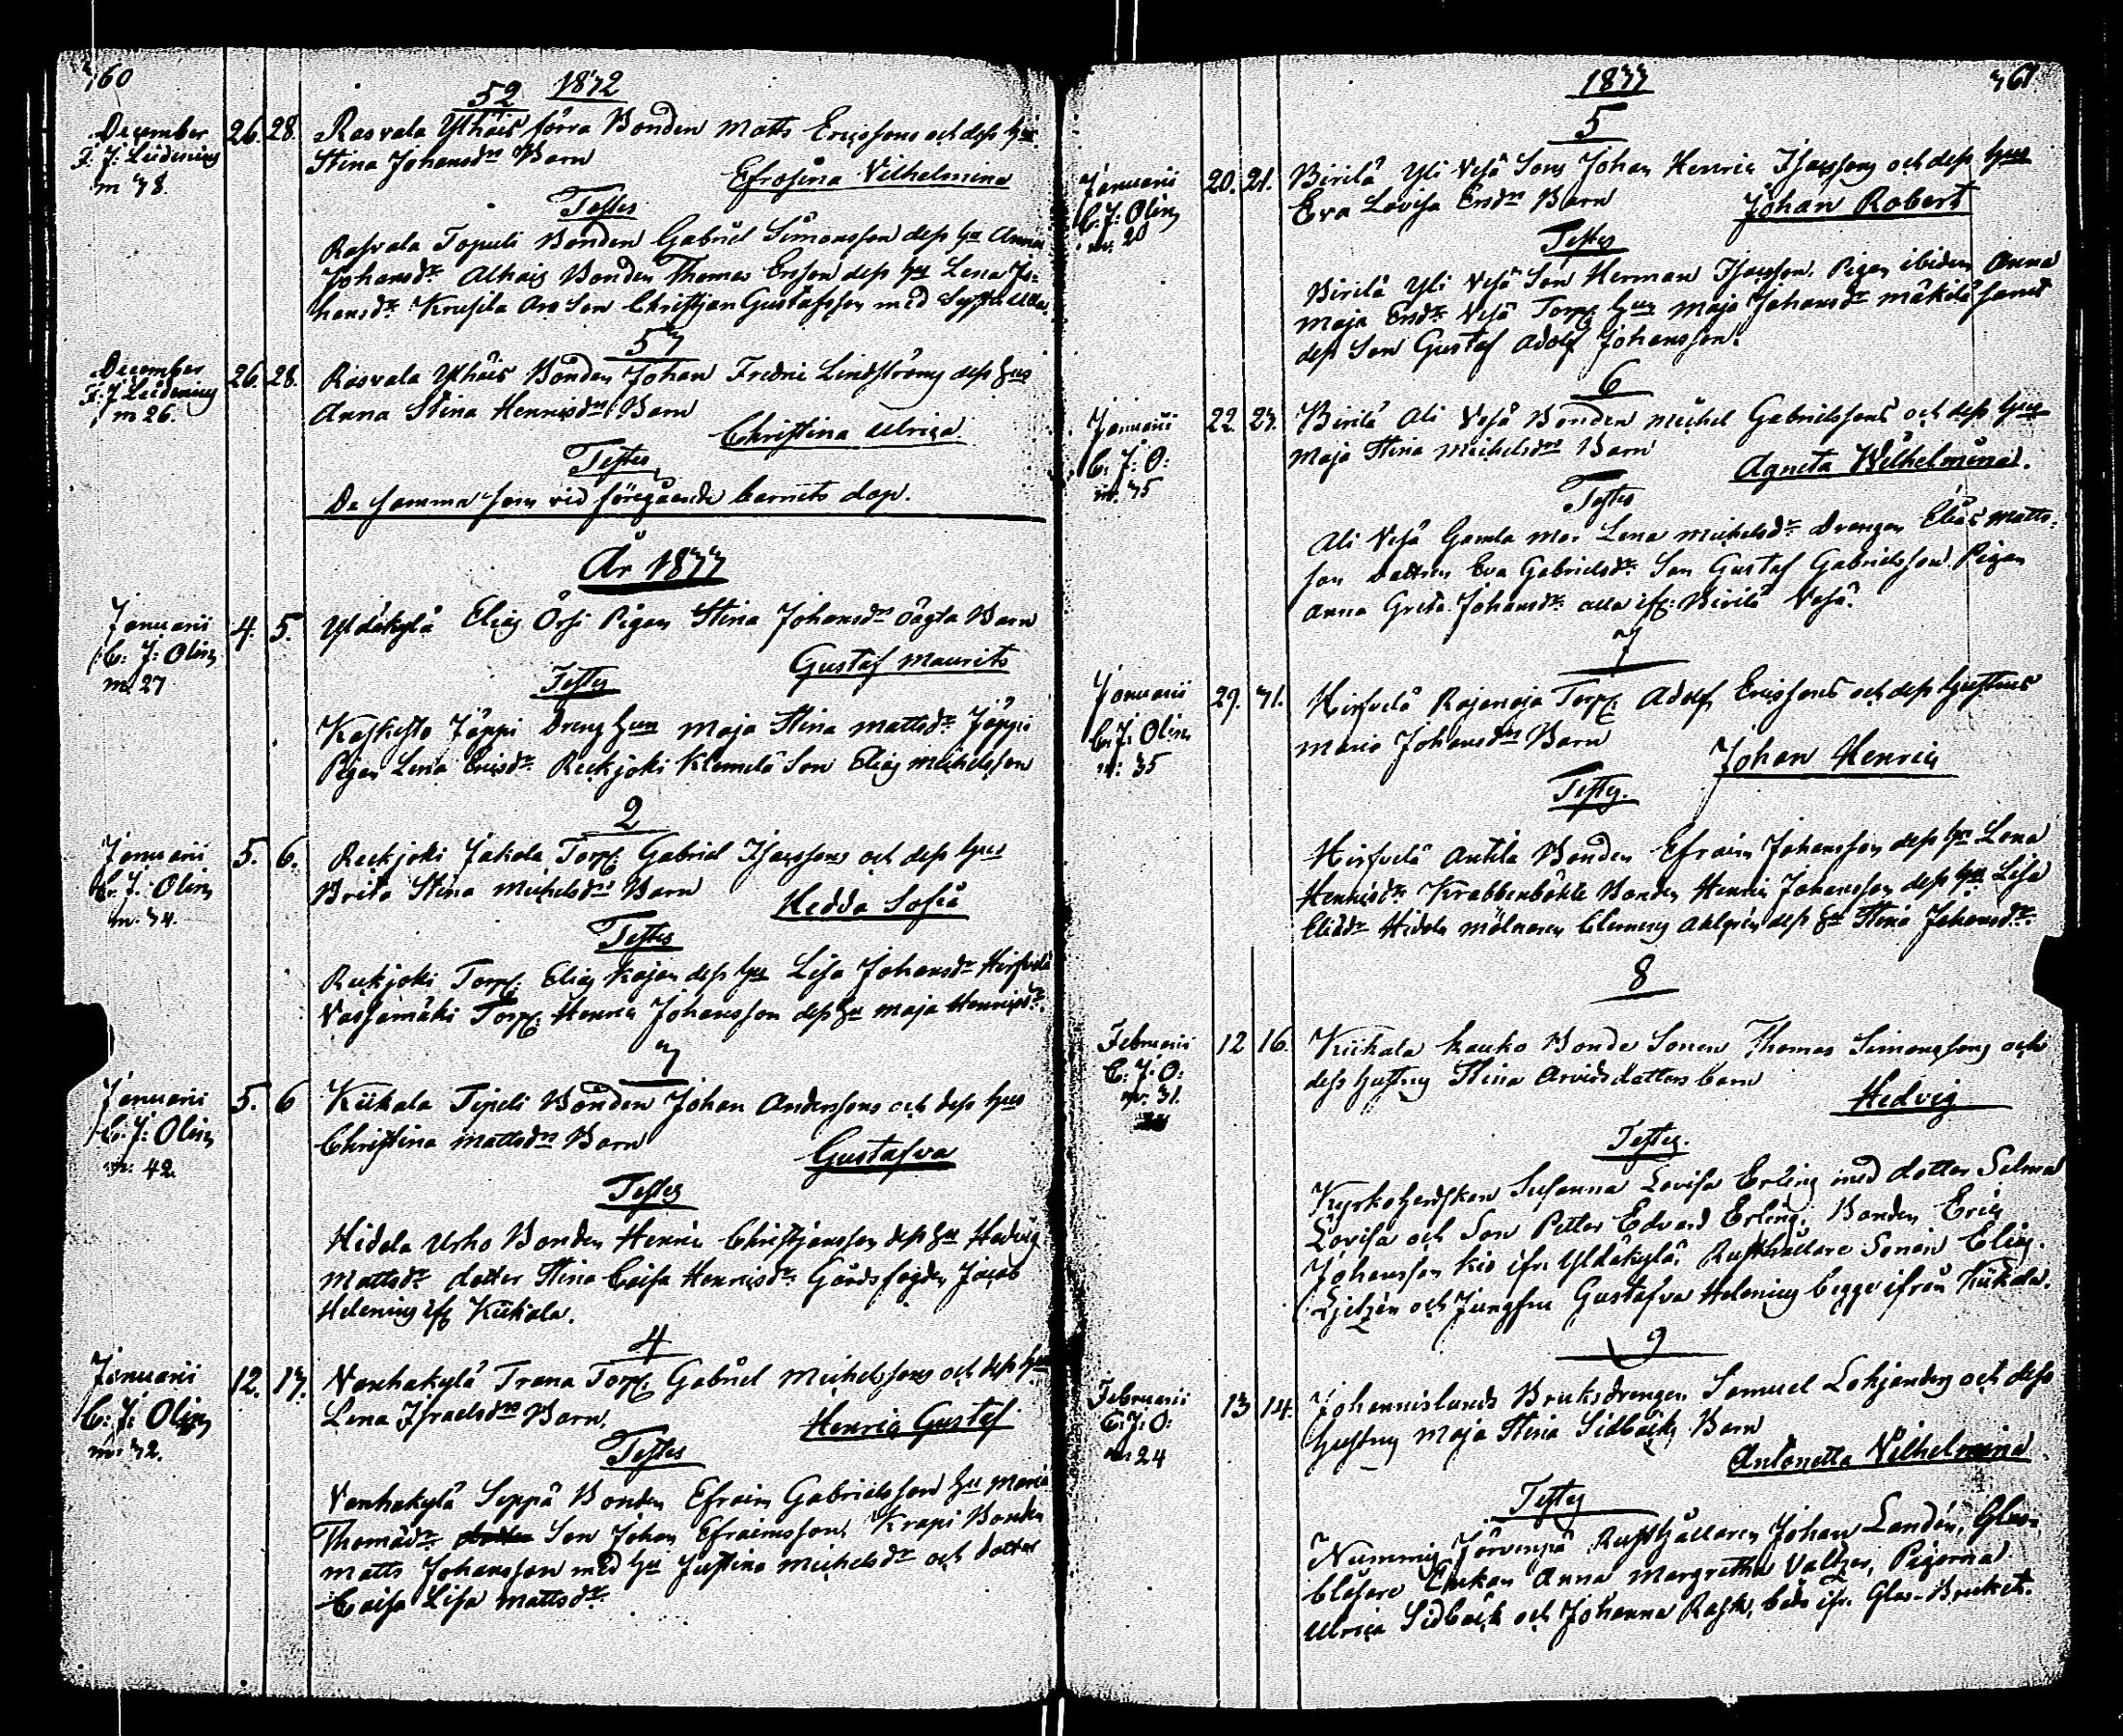 360
52 1832
December 26. 28. Rasvala Ylhäis förra Bonden Matts Ericssons och dess hu
F. J: Lidenius Stina Johansdrs Barn
m 38. Efrosina Vilhelmina
Testes
Rasvala Topuli Bonden Gabriel Simonsson dess hu Anna
Johansdr. Alhais Bonden Thomas Ersson dess hu Lena Jo-
hansdr. Krusila Aro Son Christjan Gustafsson med Syster Ulla.
53
December 26. 28. Rasvala Ylhäis Bonden Johan Fredric Lindströms dess hus
F. J Lidenius Anna Stina Henricsdrs Barn
m 26. Christina Ulrica
Testes
De samma som vid föregående barnets dop.
År 1833
Januarii 4. 5. Yldäkylä Elias Örsi Pigan Stina Johansdrs oägta Barn
C: J: Olin Gustaf Maurits
m. 27 Testes
Koskisto Jäppi Dreng hun Maja Stina Mattsdr. Jäppi
Pigan Lena Ericsdr. Reekjoki Klemelä Son Elias Michelsson
2
Januarii 5. 6. Reekjoki Jakola Torp. Gabriel Isacssons och dess hus
C. J. Olin Brita Stina Michelsdrs Barn
m. 34. Hedda Sofia
Testes
Reekjoki Torp. Elias Kajan dess hu Lisa Johansdr Hirsvelä
Vassamäki Torp. Henric Johansson dess hu Maja Henricsdr.
3
Januarii 5. 6 Kiikala Tipeli Bonden Johan Anderssons och dess hus
C. J: Olin Christina Mattsdrs Barn
m: 42 Gustafva
Testes
Hidola Urho Bonden Henric Christjansson dess hu Hedvig
Mattsdr. dotter Stina Caisa Henricsdr. Gårdsfogden Jacob
Helenius if Kiikala.
4
Januarii 12. 13. Vanhakylä Trana Torp. Gabriel Michelssons och dess hus
C: J: Olin Lena Israelsdrs Barn.
m. 32. Henric Gustaf
Testes
Vanhakylä Seppä Bonden Efraim Gabrielsson hu Maria
Thomädr Son Johan Efraimsson, Krapi Bonden
Matts Johansson med hu Justina Michelsdr och dotter
Caisa Lisa Mattsdr.
1833 361
5
Januarii 20. 21. Birilä Yli Vesä Sons Johan Henric Isacssons och dess hus
C. J: Olin Eva Lovisa Ersdrs Barn Johan Robert
m. 20 Testes
Birilä Yli Vesä Son Herman Isacsson. Pigan ibidem Anna
Maja Ersdr. Vesä Torp hun Maja Johansdr Mäkilä samt
dess Son Gustaf Adolf Johansson.
6
Januarii 22. 23. Birilä Ali Vesä Bonden Michel Gabrielssons och dess hus
C. J: O: Maja Stina Michelsdrs Barn
m. 35 Agneta Wilhelmina.
Testes
Ali Vesä Gamla Mor Lena Michelsdr. Drengen Elias Matts-
son dottren Eva Gabrielsdr. Son Gustaf Gabrielsson. Pigan
Anna Greta Johansdr. alla if: Birilä Vesä.
7
Januarii 29. 31. Hirsvelä Rajanoja Torp. Adolf Ericssons och dess hustrus
C. J: Olin Maria Johansdrs Barn
m: 35 Johan Henric
Testes.
Hirsvelä Antila Bonden Efraim Johansson dess hu Lena
Henricsdr. Krabbenböhle Bonden Henric Johansson dess hu Lisa
Eliädr Hidola Mölnaren Clemens Ahlgrén dess hu Stina Johansdr.
8
Februarii 12 16. Kiikala Kauko Bonde Sonen Thomas Simonssons och
C: J: O: dess hustrus Stina Arvidsdotters barn
m: 31. Hedvig
Testes.
Kyrkoherdskan Susanna Lovisa Erling med dotter Selma
Lovisa och Son Petter Edvard Erling. Bonden Eric
Johansson Kio ifr. Yldäkylä. Rusthållare Sonen Elias
Ljelzén och Jungfru Gustafva Helenius begge ifrån Kiikala.
9
Februarii 13 14. Johannislunds Bruksdrengen Samuel Lohjanders och dess
C: J: O: hustrus Maja Stina Sidbäcks Barn
m 24 Antonetta Vilhelmina
Testes
Nummis Järvenpä Rusthållaren Johan Landén, Glas-
blåsare Enkan Anna Margretha Valtzer, Pigorna
Ulrica Sidbäck och Johanna Rask, båda ifr. Glas-Bruket.